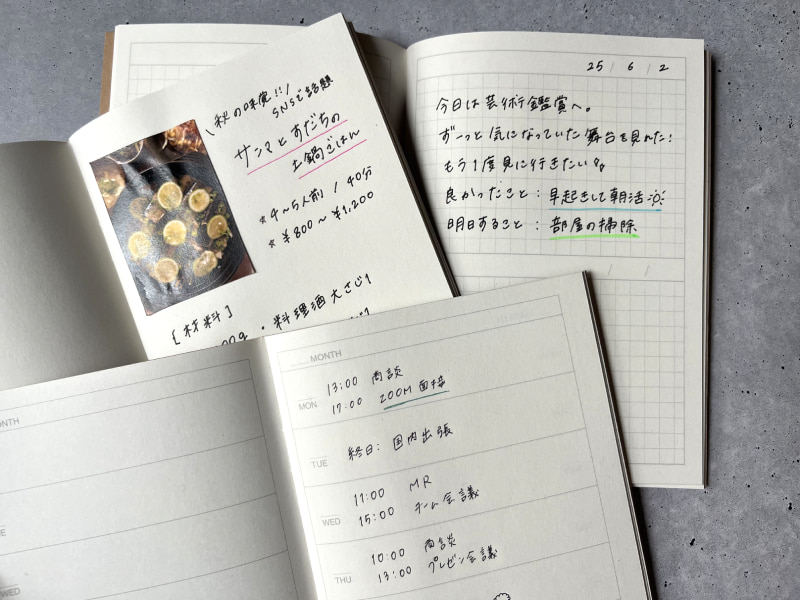 \秋の味覚!!/
SNSで話題
サンマとすだちの
土鍋ごはん
☆4〜5人前 / 40分
☆¥800〜¥1,200
[材料]
・料理酒大さじ1
25 / 6 / 2
今日は芸術鑑賞へ。
ずーっと気になっていた舞台を見れた!
もう1度見に行きたい
良かったこと:早起きして朝活
明日すること:部屋の掃除
/ /
MONTH
MON
13:00 商談
17:00 ZOOM面接
TUE
終日:国内出張
WED
11:00 MR
15:00 チーム会議
THU
10:00 商談
13:00 プレゼン会議
WED